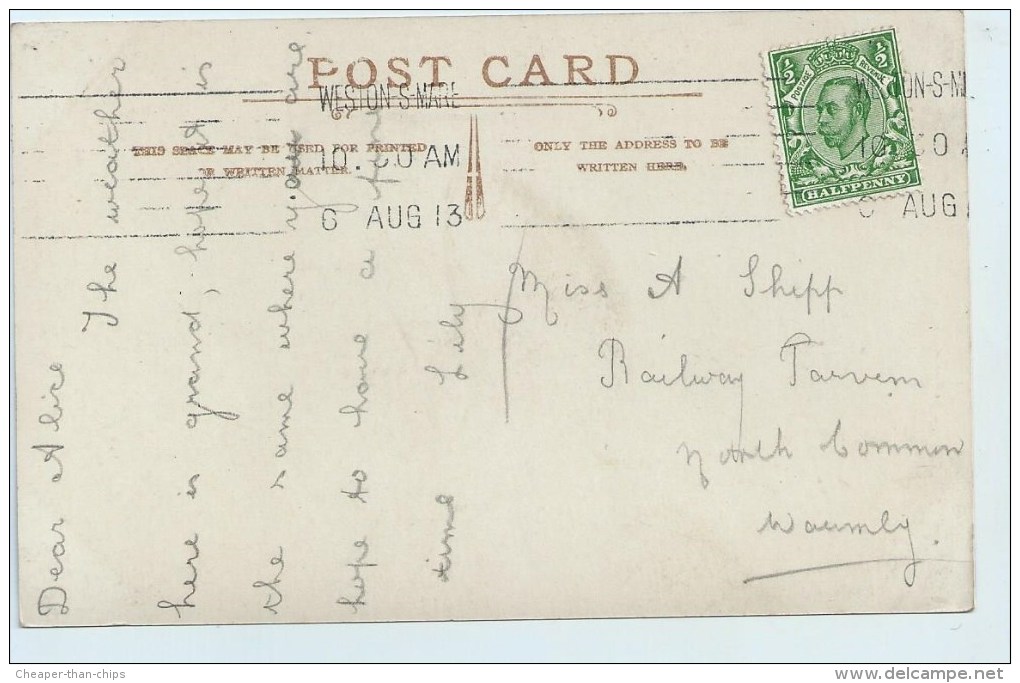 POST CARD
WESTON-S-MARE
10.30 AM
6 AUG 13
WESTON-S-M
10 30 A
6 AUG 1
THIS SPACE MAY BE USED FOR PRINTED
OR WRITTEN MATTER.
ONLY THE ADDRESS TO BE
WRITTEN HERE.
½ ½
POSTAGE REVENUE
HALFPENNY
Dear Alice
The weather
here is grand, hope it is
the same where you are
hope to have a fine
time Lily
Miss A Shipp
Railway Tarvern
North Common
Warmly.
Cheaper-than-chips
www.delcampe.net